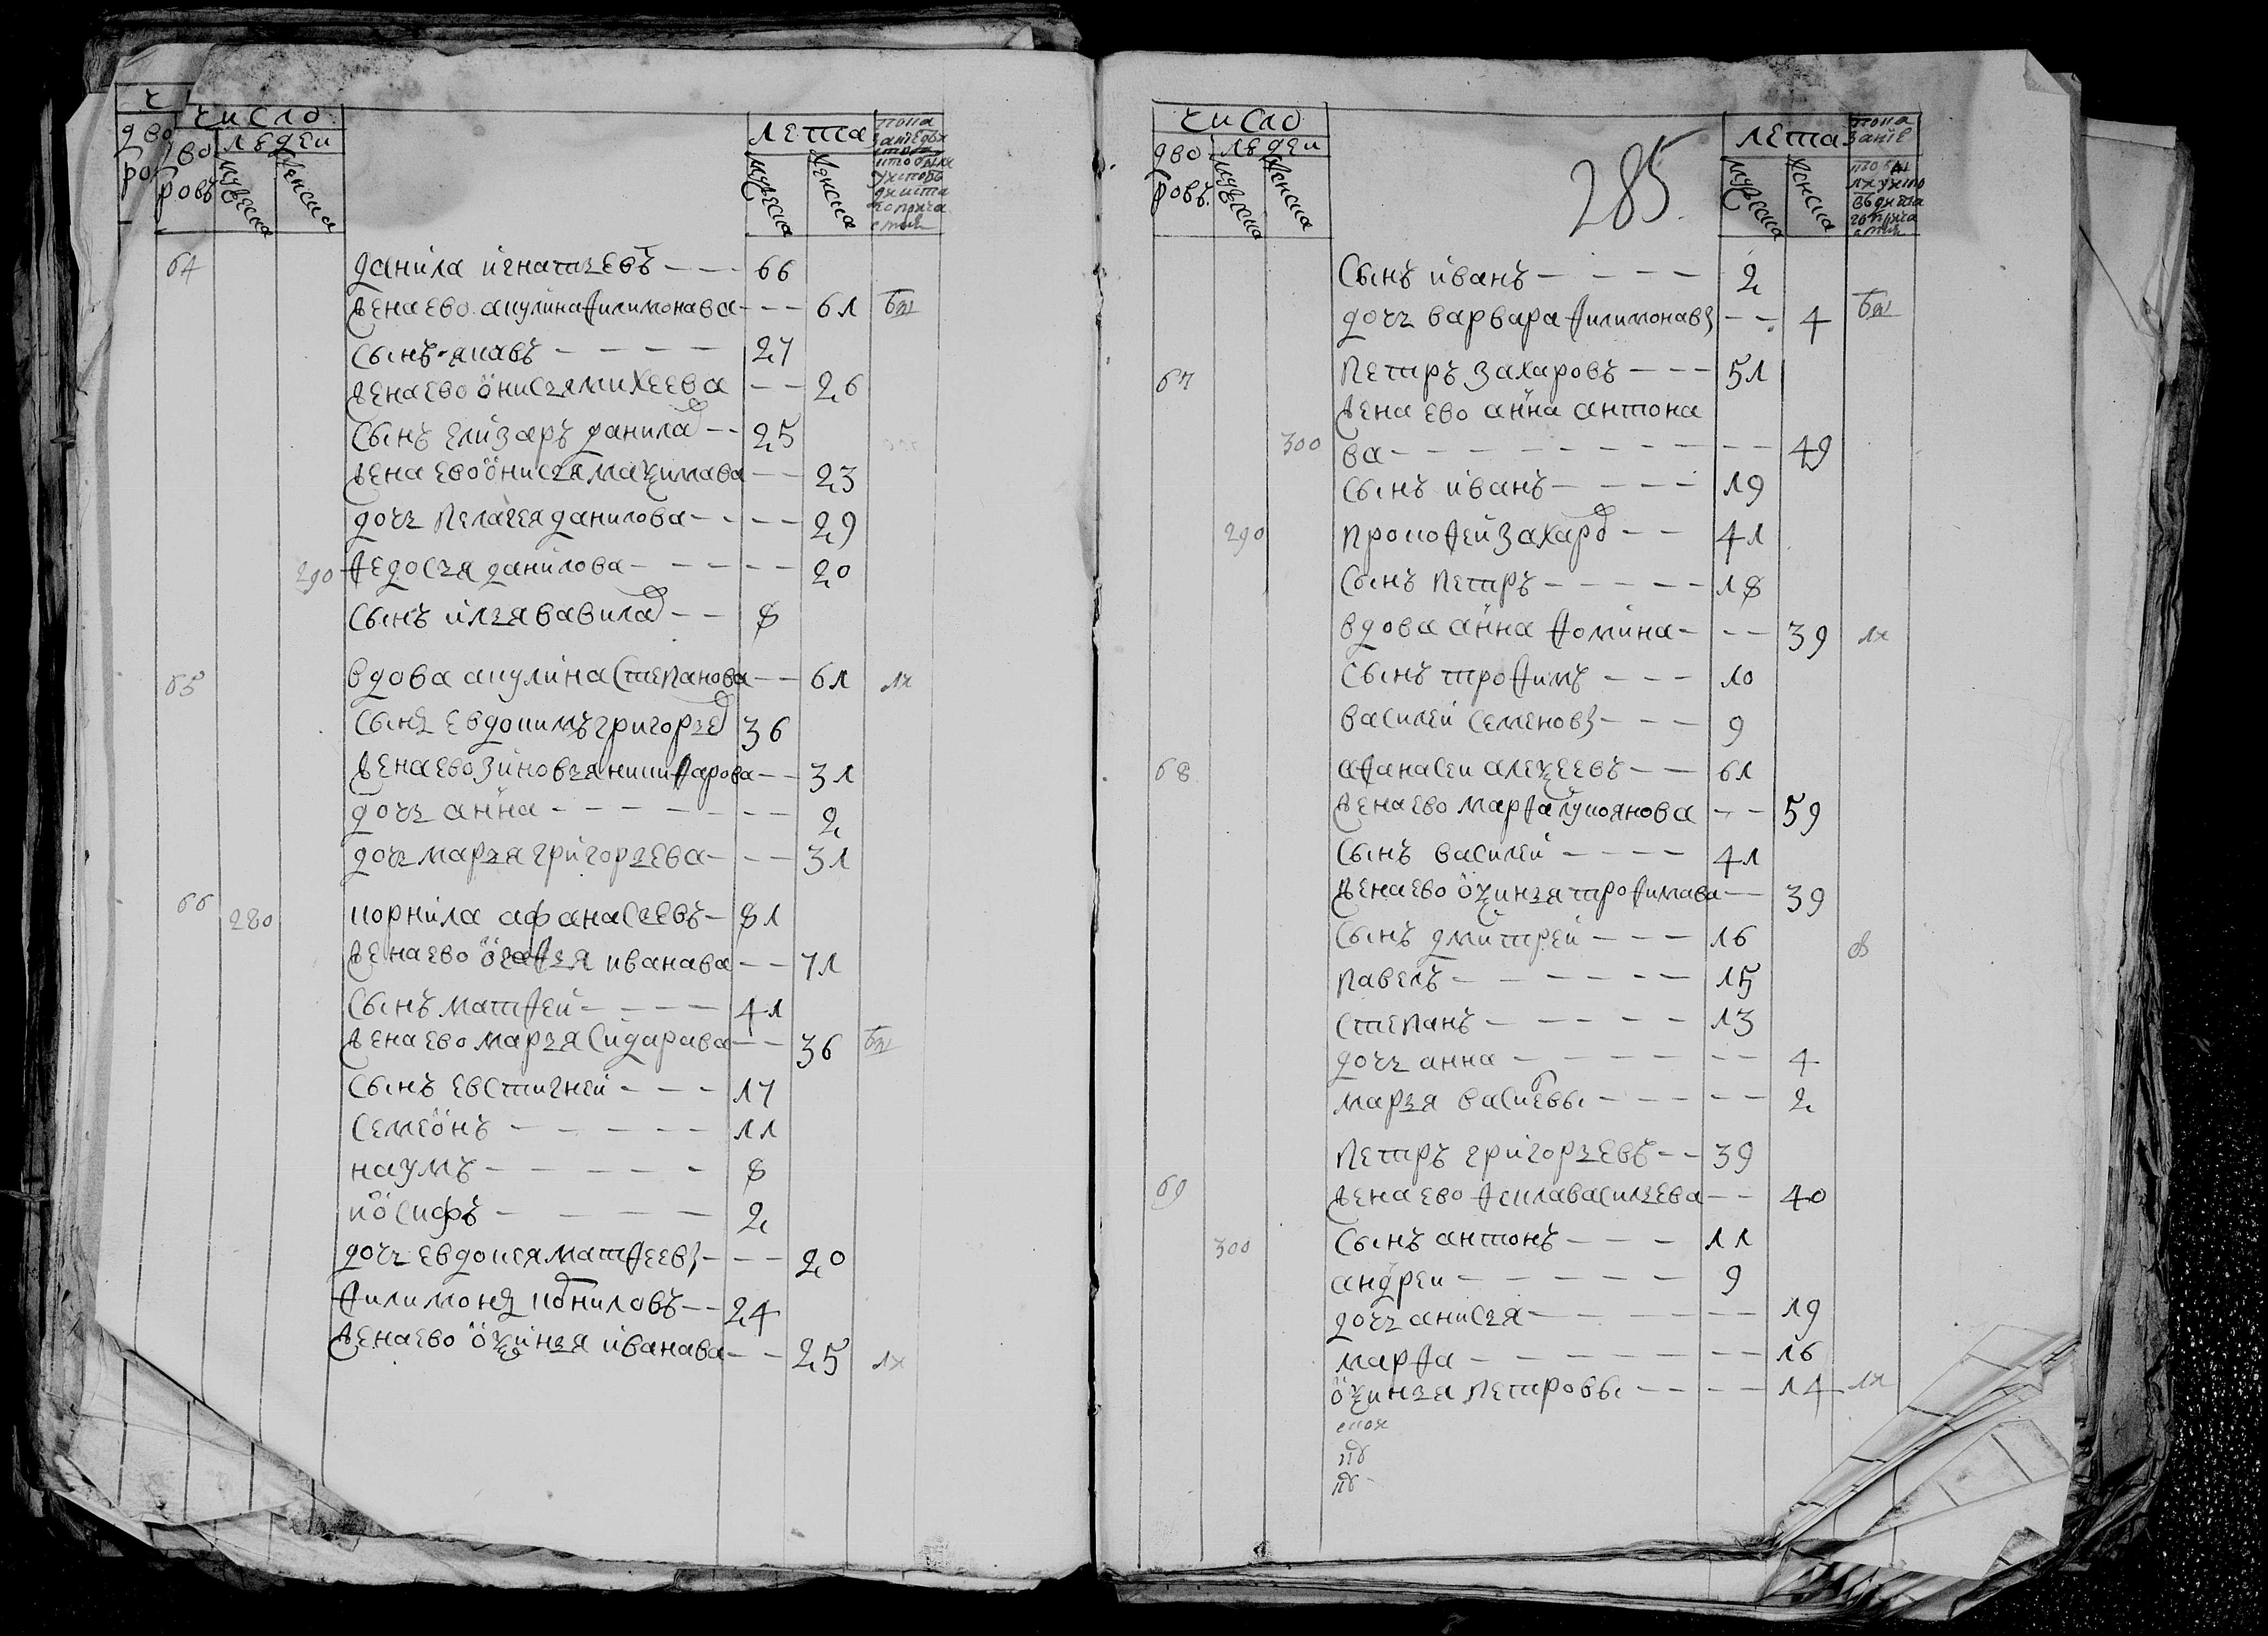 число
дворовъ людеи
мужеска женска
лета
мужеска женска
64 данила игнатьевъ - - - 66
жена ево акулина филимонава - - - 61
сынъ яковъ - - - - 27
жена ево онисья михеева - - 26
сынъ елизаръ данилов - - 25
жена ево онисья мазимава - - 23
дочь пелагея данилова - - - - 29
290 федосья данилова - - - - - 20
сынъ илья вавилов - - 8
65 вдова акулина степанова - - 61 лх
сынъ евдокимъ григорьев 36
жена ево зиновья никифарова - - 31
дочь анна - - - - - - - 2
дочь марья григорьева - - - 31
66 280 корнила афанасьевъ - 81
жена ево огафья иванава - - 71
сынъ матфеи - - - - 41
жена ево марья сидарава - - 36
сынъ евстигнеи - - - 17
семеонъ - - - - - 11
наумъ - - - - - 8
иосифъ - - - - - 2
дочь евдокея матфеевъ - - - 20
филимонъ корниловъ - - 24
жена ево оксинья иванава - - 25 лх
число
дворовъ людеи
мужеска женска
285.
лета
мужеска женска
сынъ иванъ - - - - - 2
дочь варвара филимонавъ - - 4
67 петръ захаровъ - - - 51
жена ево анна антона
300 ва - - - - - - - - - 49
сынъ иванъ - - - - 19
290 прокофеи захаров - - 41
сынъ петръ - - - - - 18
вдова анна фомина - - - 39 лх
сынъ трофимъ - - - 10
василеи семеновъ - - - 9
68 афанасеи алексеевъ - - 61
жена ево марфа лукоянова - - 59
сынъ василеи - - - - 41
жена ево оксинья трофимава - - 39
сынъ дмитреи - - - 16
павелъ - - - - - - 15
степанъ - - - - - 13
дочь анна - - - - - - 4
марья васильевы - - - - - 2
петръ григорьевъ - - 39
69 жена ево фекла васильева - - 40
300 сынъ антонъ - - - - 11
андреи - - - - - - 9
дочь анисья - - - - - - 19
марфа - - - - - - - 16
оксинья петровы - - - - 14 лх